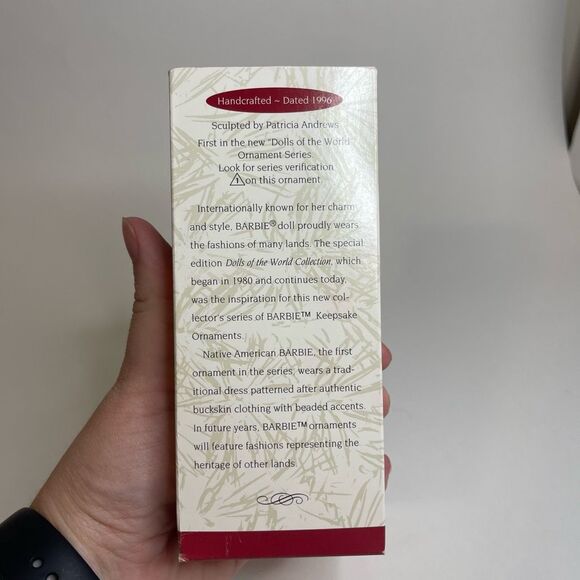 Handcrafted ~ Dated 1996
Sculpted by Patricia Andrews
First in the new "Dolls of the World"
Ornament Series
Look for series verification
1 on this ornament.
Internationally known for her charm
and style, BARBIE® doll proudly wears
the fashions of many lands. The special
edition Dolls of the World Collection, which
began in 1980 and continues today,
was the inspiration for this new col-
lector's series of BARBIE™ Keepsake
Ornaments.
Native American BARBIE, the first
ornament in the series, wears a trad-
itional dress patterned after authentic
buckskin clothing with beaded accents.
In future years, BARBIE™ ornaments
will feature fashions representing the
heritage of other lands.